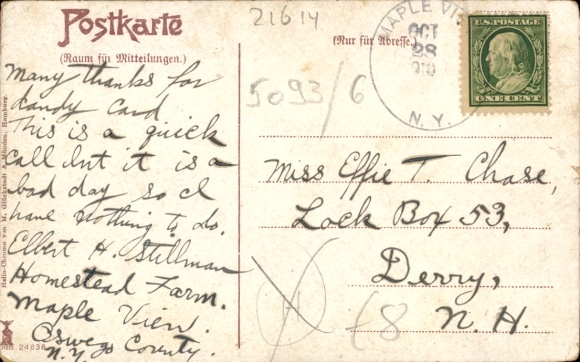 Postkarte
(Raum für Mitteilungen.)
(Nur für Adresse.)
21614
5093/6
MAPLE VIEW
OCT
28
N. Y.
U.S. POSTAGE
ONE CENT
Many thanks for
candy card.
This is a quick
call but it is a
bad day so I
have nothing to do.
Elbert H. Stillman
Homestead Farm.
Maple View.
Oswego County.
N.Y.
Miss Effie T. Chase,
Lock Box 53,
Derry,
N. H.
H
Helio-Chrome von M. Glückstadt & Münden, Hamburg.
No. 24838